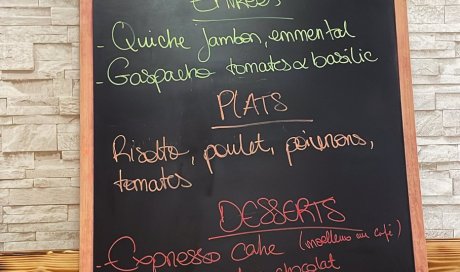 ENTRÉES
- Quiche jambon, emmental
- Gaspacho tomates & basilic
PLATS
Risotto, poulet, poivrons,
tomates
DESSERTS
- Expresso cake (moelleux au café)
chocolat